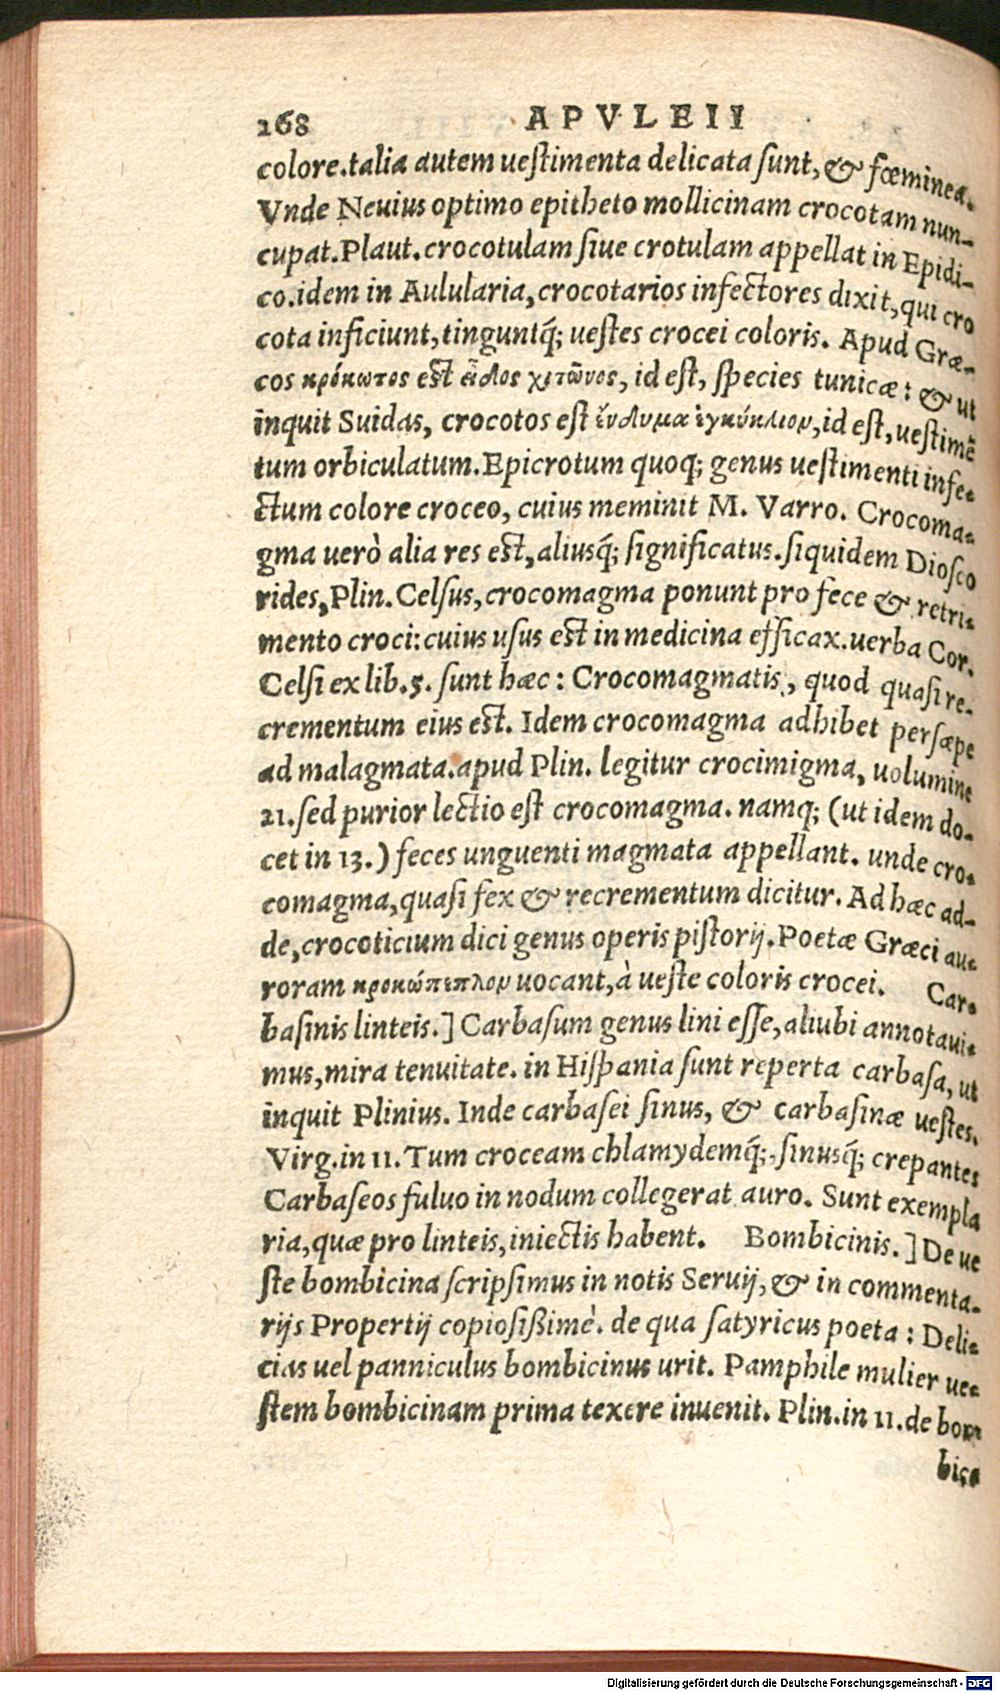 168 APVLEII
colore.talia autem uestimenta delicata sunt, & fœminea.
Vnde Neuius optimo epitheto mollicinam crocotam nun-
cupat.Plaut.crocotulam siue crotulam appellat in Epidi-
co.idem in Aulularia,crocotarios infectores dixit,qui cro
cota inficiunt,tinguntq́; uestes crocei coloris. Apud Græ-
cos κρόκωτος est εἶδος χιτῶνος, id est, species tunicæ: & ut
inquit Suidas, crocotos est ἔνδυμα ἐγκύκλιον,id est,uestimē
tum orbiculatum.Epicrotum quoq; genus uestimenti infe-
ctum colore croceo, cuius meminit M. Varro. Crocoma-
gma uerò alia res est,aliusq́; significatus.siquidem Diosco
rides,Plin.Celsus,crocomagma ponunt pro fece & retri-
mento croci:cuius usus est in medicina efficax.uerba Cor.
Celsi ex lib.5. sunt hæc: Crocomagmatis, quod quasi re-
crementum eius est. Idem crocomagma adhibet persæpe
ad malagmata.apud Plin. legitur crocimigma, uolumine
21.sed purior lectio est crocomagma. namq; (ut idem do-
cet in 13.) feces unguenti magmata appellant. unde cro-
comagma,quasi fex & recrementum dicitur. Ad hæc ad-
de,crocoticium dici genus operis pistorij.Poetæ Græci au-
roram κροκώπεπλον uocant,à ueste coloris crocei. Car-
basinis linteis.] Carbasum genus lini esse,aliubi annotaui-
mus,mira tenuitate. in Hispania sunt reperta carbasa, ut
inquit Plinius. Inde carbasei sinus, & carbasinæ uestes.
Virg.in 11.Tum croceam chlamydemq́;,sinusq́; crepantes
Carbaseos fuluo in nodum collegerat auro. Sunt exempla
ria,quæ pro linteis,iniectis habent. Bombicinis.] De ue
ste bombicina scripsimus in notis Seruij, & in commenta-
rijs Propertij copiosißimè. de qua satyricus poeta: Deli-
cias uel panniculus bombicinus urit. Pamphile mulier ue-
stem bombicinam prima texere inuenit. Plin.in 11.de bom
bice
Digitalisierung gefördert durch die Deutsche Forschungsgemeinschaft - DFG